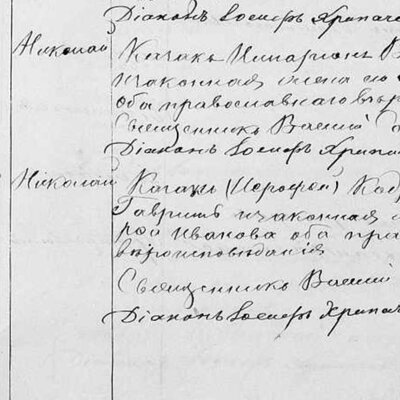 Діаконъ Іосифъ Хрипаче
Николай
Казакъ Иларіонъ В
и законная жена его
оба православнаго вѣр
Священникъ Василій
Діаконъ Іосифъ Хрипа
Николай
Казакъ (Іерофей)
Гавришъ и законная
рой Иванова оба пра
вѣроисповѣданія
Священникъ Василій
Діаконъ Іосифъ Хрипач